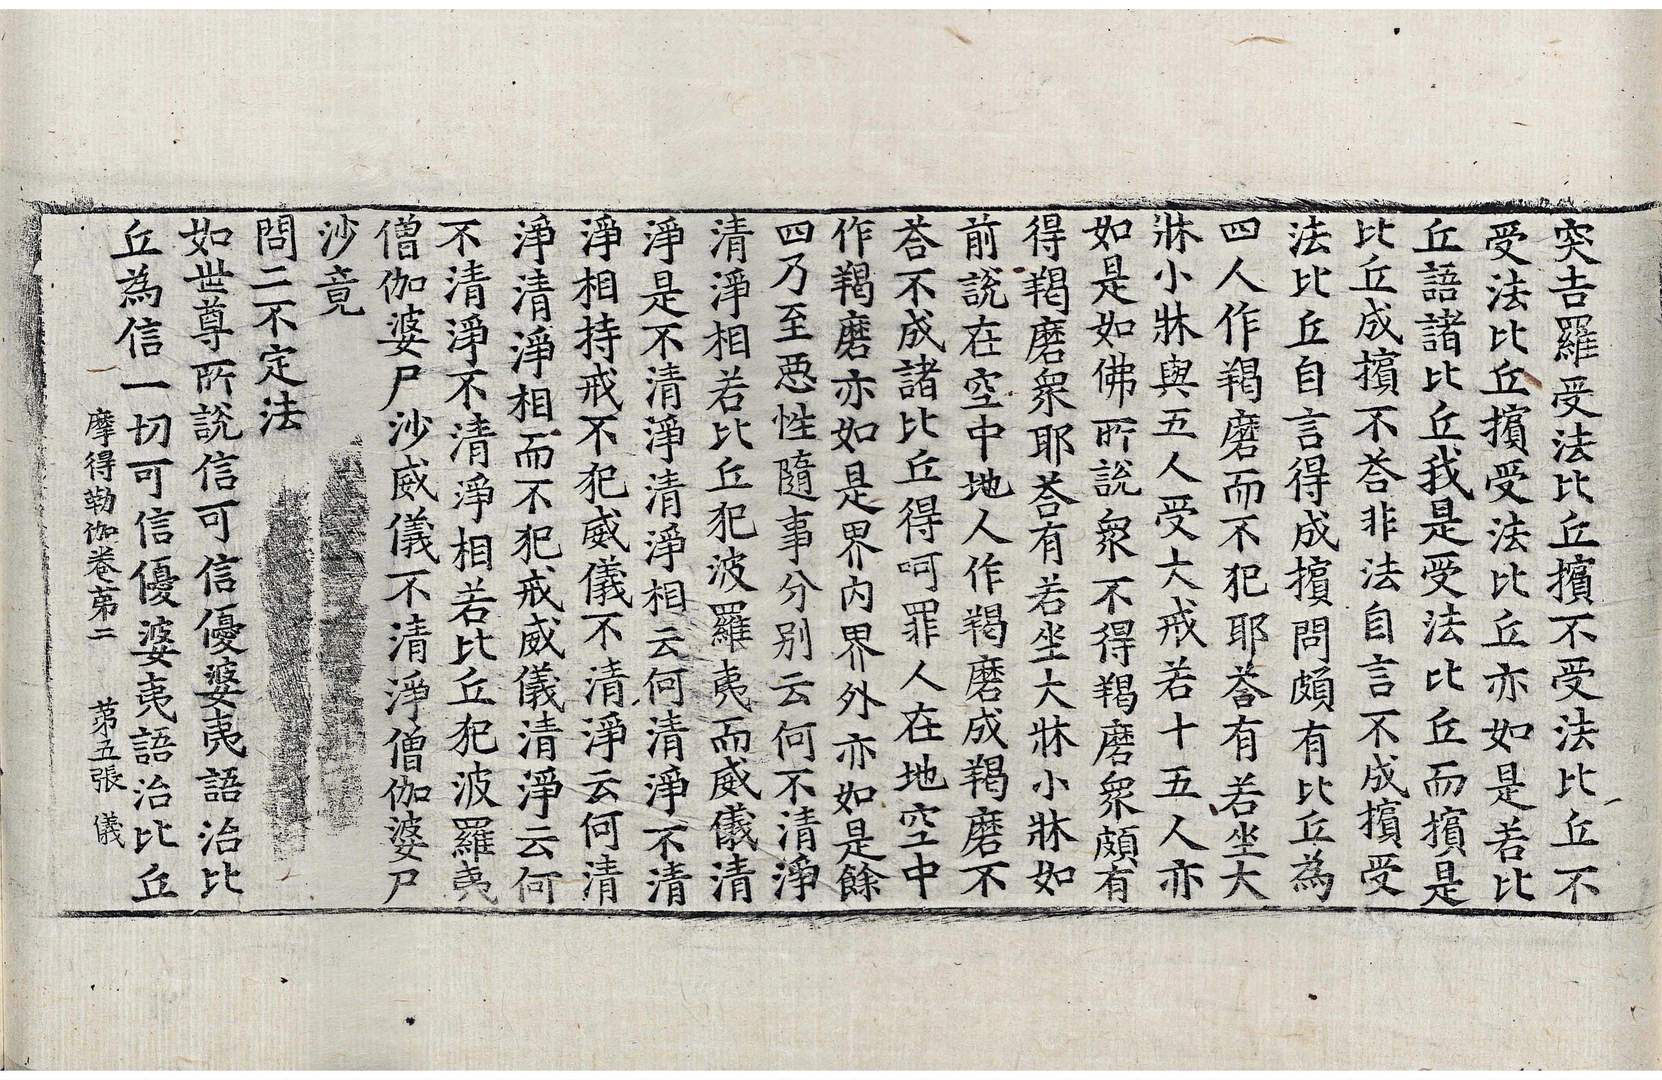 突吉羅受法比丘擯不受法比丘不
受法比丘擯受法比丘亦如是若比
丘語諸比丘我是受法比丘而擯是
比丘成擯不荅非法自言不成擯受
法比丘自言得成擯問頗有比丘為
四人作羯磨而不犯耶荅有若坐大
牀小牀與五人受大戒若十五人亦
如是如佛所說衆不得羯磨衆頗有
得羯磨衆耶荅有若坐大牀小牀如
前說在空中地人作羯磨成羯磨不
荅不成諸比丘得呵罪人在地空中
作羯磨亦如是界內界外亦如是餘
四乃至惡性隨事分別云何不清淨
清淨相若比丘犯波羅夷而威儀清
淨是不清淨清淨相云何清淨不清
淨相持戒不犯威儀不清淨云何清
淨清淨相而不犯戒威儀清淨云何
不清淨不清淨相若比丘犯波羅夷
僧伽婆尸沙威儀不清淨僧伽婆尸
沙竟
問二不定法
如世尊所說信可信優婆夷語治比
丘為信一切可信優婆夷語治比丘
摩得勒伽卷第二 第五張 儀